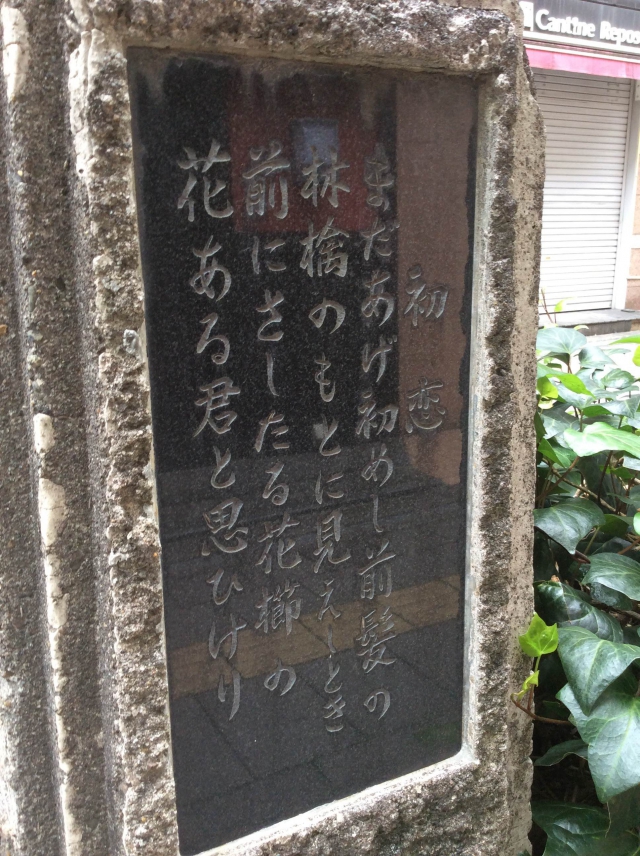 初恋
まだあげ初めし前髪の
林檎のもとに見えしとき
前にさしたる花櫛の
花ある君と思ひけり
Cantine Repos